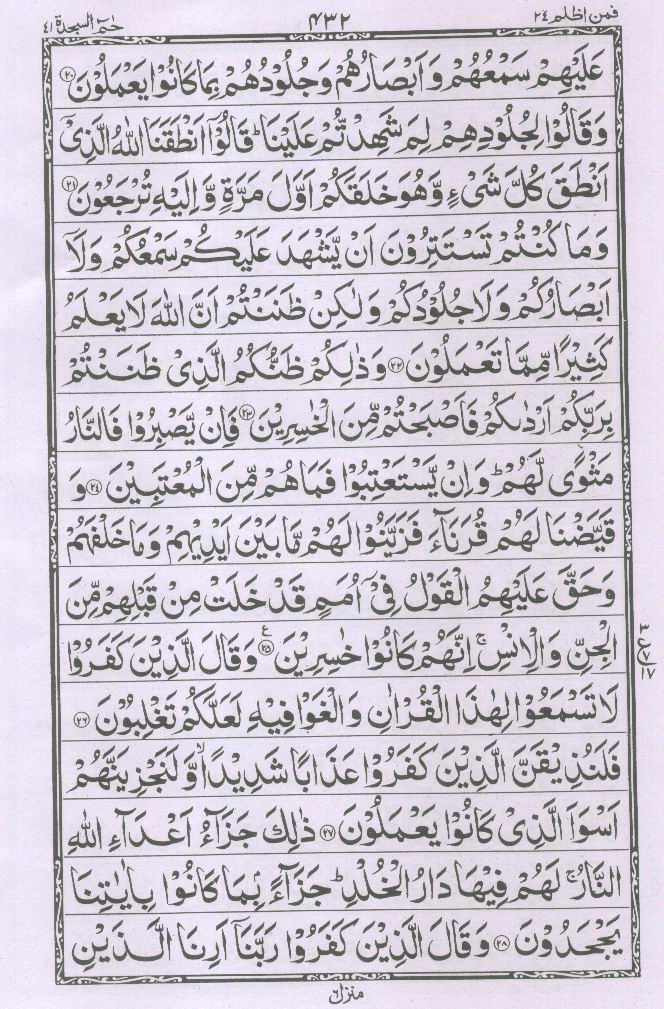 فمن اظلم ٢٤ ٤٣٢ حٰمٓ السجدة ٤١
عَلَيْهِمْ سَمْعُهُمْ وَاَبْصَارُهُمْ وَجُلُوْدُهُمْ بِمَا كَانُوْا يَعْمَلُوْنَ ۝٢٠
وَقَالُوْا لِجُلُوْدِهِمْ لِمَ شَهِدْتُّمْ عَلَيْنَا ؕ قَالُوْۤا اَنْطَقَنَا اللّٰهُ الَّذِيْۤ
اَنْطَقَ كُلَّ شَيْءٍ وَّهُوَ خَلَقَكُمْ اَوَّلَ مَرَّةٍ وَّاِلَيْهِ تُرْجَعُوْنَ ۝٢١
وَمَا كُنْتُمْ تَسْتَتِرُوْنَ اَنْ يَّشْهَدَ عَلَيْكُمْ سَمْعُكُمْ وَلَاۤ
اَبْصَارُكُمْ وَلَا جُلُوْدُكُمْ وَلٰكِنْ ظَنَنْتُمْ اَنَّ اللّٰهَ لَا يَعْلَمُ
كَثِيْرًا مِّمَّا تَعْمَلُوْنَ ۝٢٢ وَذٰلِكُمْ ظَنُّكُمُ الَّذِيْ ظَنَنْتُمْ
بِرَبِّكُمْ اَرْدٰىكُمْ فَاَصْبَحْتُمْ مِّنَ الْخٰسِرِيْنَ ۝٢٣ فَاِنْ يَّصْبِرُوْا فَالنَّارُ
مَثْوًى لَّهُمْ ؕ وَاِنْ يَّسْتَعْتِبُوْا فَمَا هُمْ مِّنَ الْمُعْتَبِيْنَ ۝٢٤ وَ
قَيَّضْنَا لَهُمْ قُرَنَآءَ فَزَيَّنُوْا لَهُمْ مَّا بَيْنَ اَيْدِيْهِمْ وَمَا خَلْفَهُمْ
وَحَقَّ عَلَيْهِمُ الْقَوْلُ فِيْۤ اُمَمٍ قَدْ خَلَتْ مِنْ قَبْلِهِمْ مِّنَ
الْجِنِّ وَالْاِنْسِ ۚ اِنَّهُمْ كَانُوْا خٰسِرِيْنَ ۝٢٥ ع وَقَالَ الَّذِيْنَ كَفَرُوْا
٣ ع ٧ ١٧
لَا تَسْمَعُوْا لِهٰذَا الْقُرْاٰنِ وَالْغَوْا فِيْهِ لَعَلَّكُمْ تَغْلِبُوْنَ ۝٢٦
فَلَنُذِيْقَنَّ الَّذِيْنَ كَفَرُوْا عَذَابًا شَدِيْدًا ۙ وَّلَنَجْزِيَنَّهُمْ
اَسْوَاَ الَّذِيْ كَانُوْا يَعْمَلُوْنَ ۝٢٧ ذٰلِكَ جَزَآءُ اَعْدَآءِ اللّٰهِ
النَّارُ ۚ لَهُمْ فِيْهَا دَارُ الْخُلْدِ ؕ جَزَآءًۢ بِمَا كَانُوْا بِاٰيٰتِنَا
يَجْحَدُوْنَ ۝٢٨ وَقَالَ الَّذِيْنَ كَفَرُوْا رَبَّنَاۤ اَرِنَا الَّذَيْنِ
منزل ٦